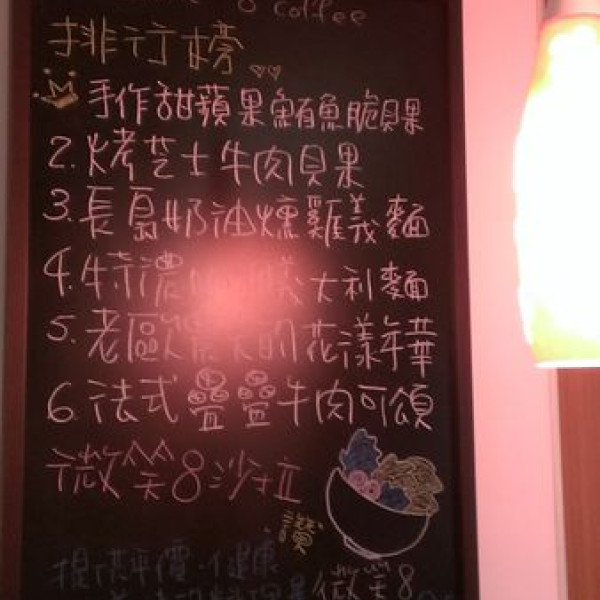 8 coffee
排行榜
手作甜蘋果鮪魚脆貝果
2.烤芝士牛肉貝果
3.長島奶油燻雞義麵
4.特濃 大利麵
5.老歐 的花漾年華
6.法式疊疊牛肉可頌
微笑8沙拉
讚
提供平價.健康
微笑8